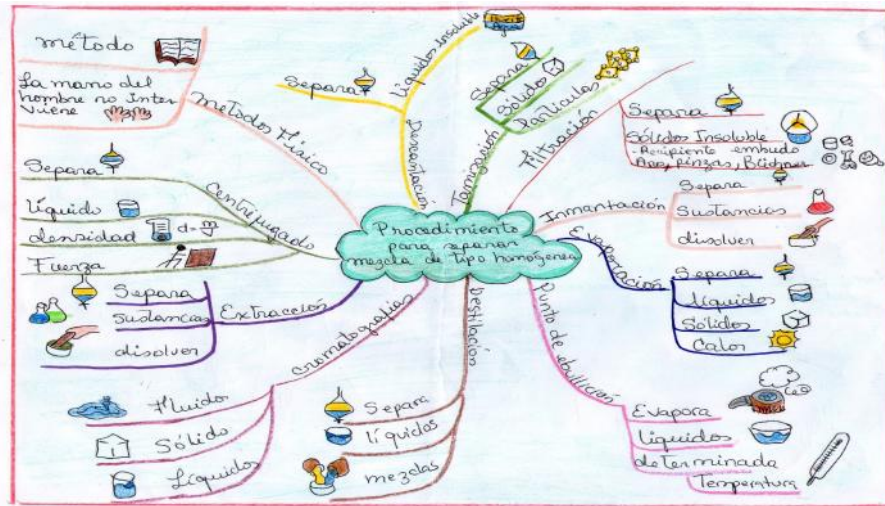 Procedimiento
para separar
mezcla de tipo homógenea
Metodos Físico
método
La mano del
hombre no Inter
Viene
Descantación
Separa
líquidos insoluble
Agua
Tamización
Separa
Sólido
Partículas
Filtración
Separa
Sólidos Insoluble
- Recipiente embudo
Aro, pinzas, Büchner
Inmantación
Separa
Sustancias
disolver
Evaporación
Separa
líquidos
Sólidos
Calor
Punto de ebullición
Evapora
Líquidos
determinada
Temperatura
Destilación
Separa
líquidos
mezclas
cromatografías
Fluidos
Sólido
Líquidos
Extracción
Separa
sustancias
disolver
Centrifugado
Separa
líquido
densidad
Fuerza